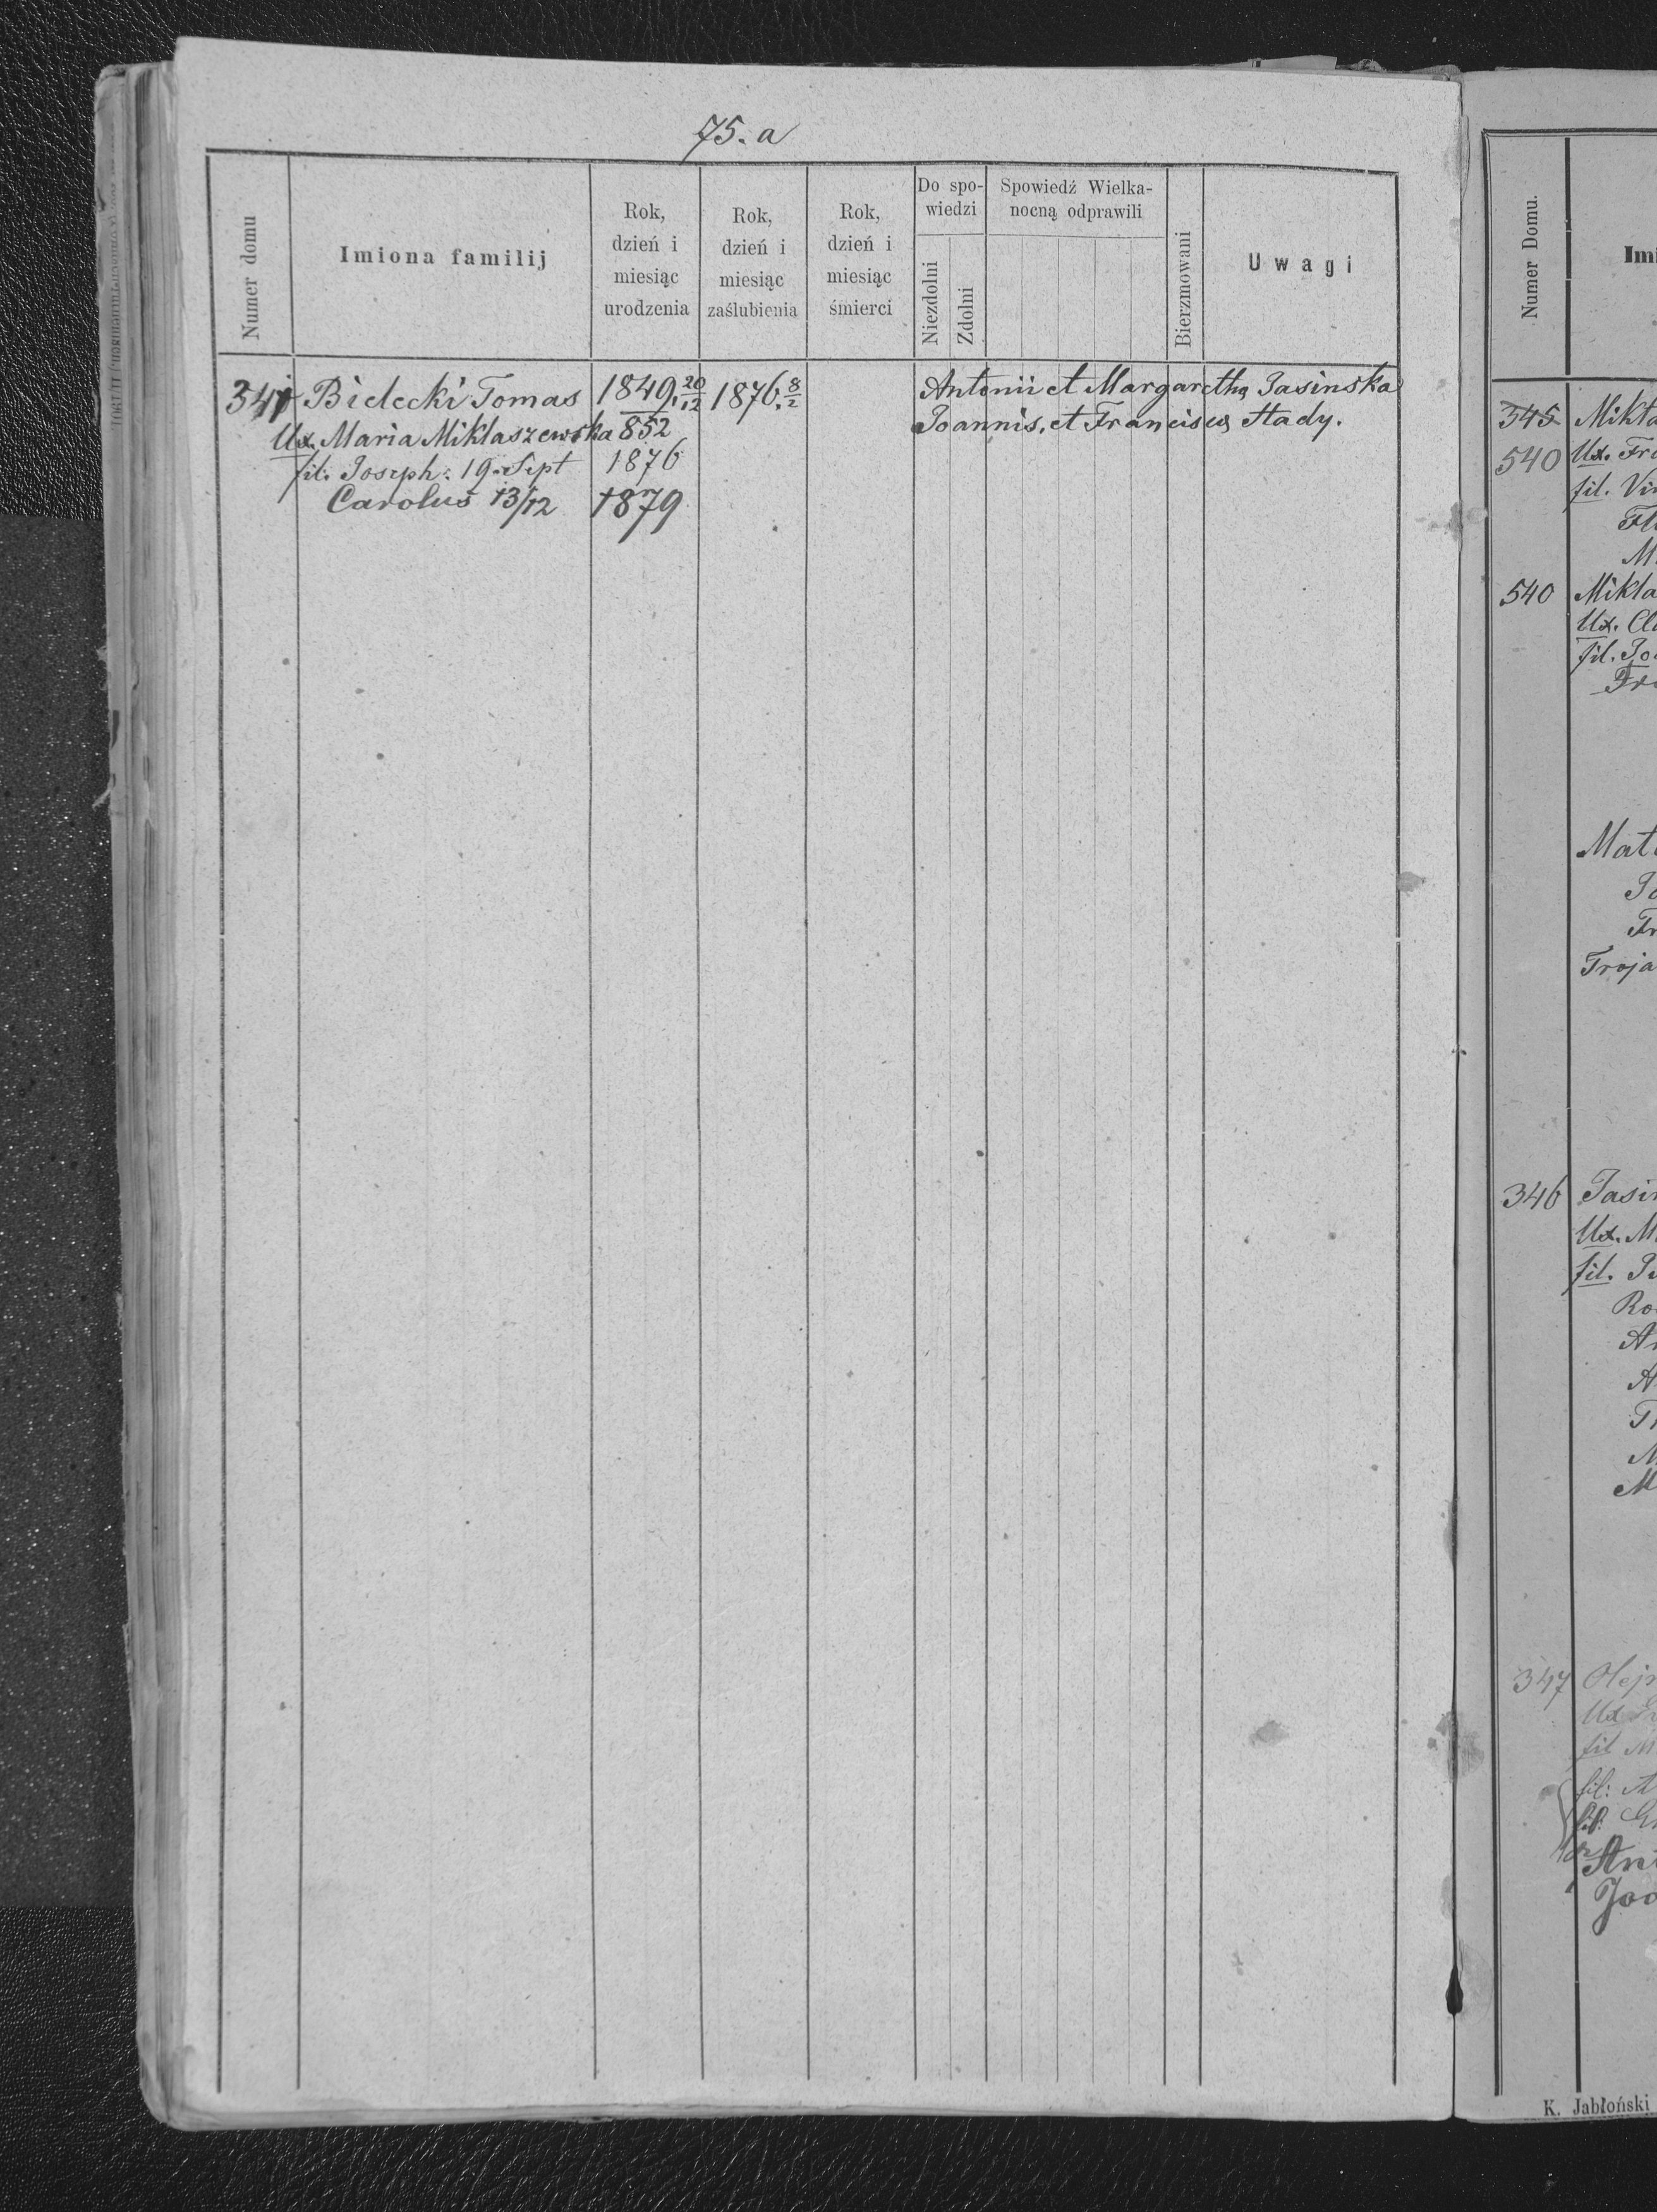 75. a
Numer domu
Imiona familij
Rok, dzień i miesiąc urodzenia
Rok, dzień i miesiąc zaślubienia
Rok, dzień i miesiąc śmierci
Do spo-
wiedzi
Niezdolni
Zdolni
Spowiedź Wielka-
nocną odprawili
Bierzmowani
Uwagi
Bielecki Tomas 1849. 20/12 1876. 8/2 Antonii et Margarethę Jasinska
Ux. Maria Miklaszewska 852 Joannis, et Franciscę Stady.
fil. Joseph: 19. Sept 1876
Carolus 13/12 1879
Numer Domu.
Imi
345 Mikla
540 Ux. Fra
fil. Vin
540 Mikla
Ux. Cl
fil. Jo
Fr
Mat
Jo
Fr
Troja
346 Jasi
Ux. M
fil. J
Ro
An
A
M
M
347 Olej
Ux
fil M
fil: A
fil.
Ant
Joa
K. Jabłoński